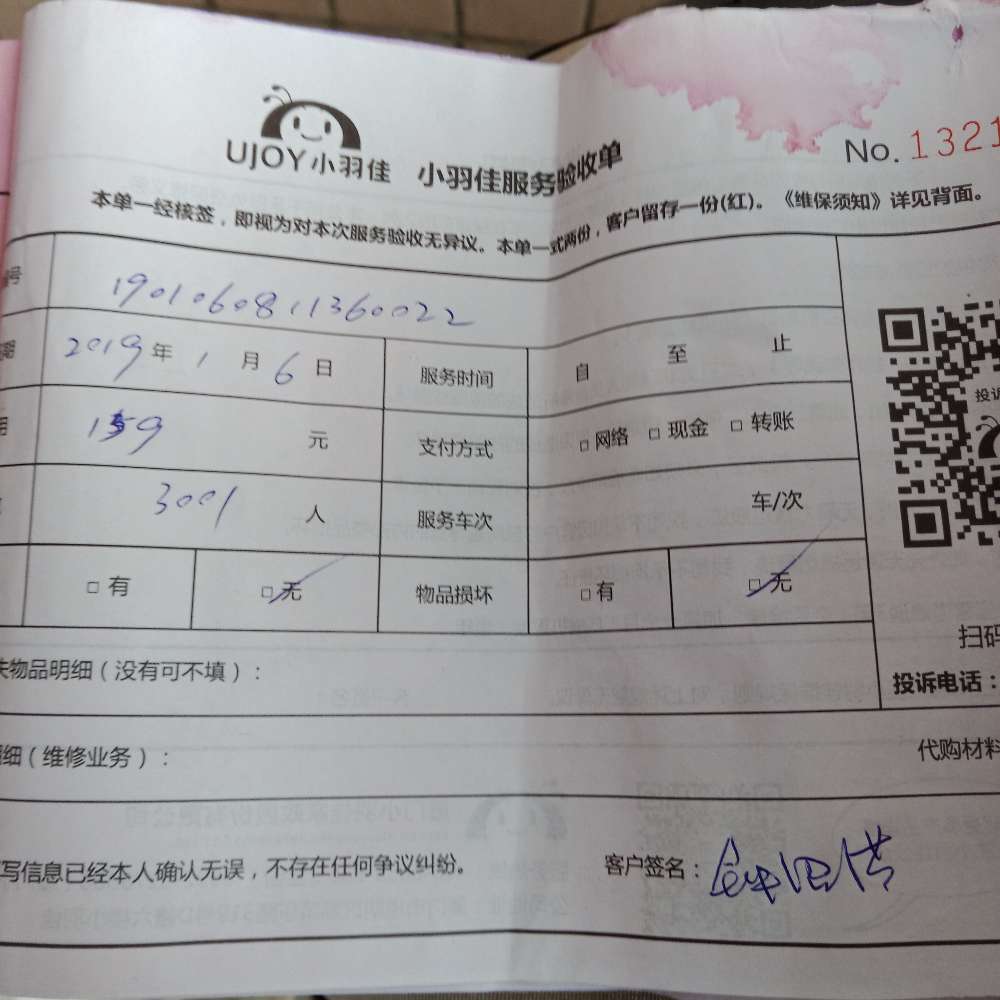 UJOY小羽佳 小羽佳服务验收单
No. 1321
本单一经核签，即视为对本次服务验收无异议。本单一式两份，客户留存一份(红)。《维保须知》详见背面。
号 1901060811360022
期 2019年1月6日 服务时间 自 至 止
用 159 元 支付方式 □网络 □现金 □转账
3001 人 服务车次 车/次
□有 □无 物品损坏 □有 □无
投诉
扫码
失物品明细（没有可不填）：
投诉电话：
细（维修业务）：
代购材料
写信息已经本人确认无误，不存在任何争议纠纷。 客户签名：